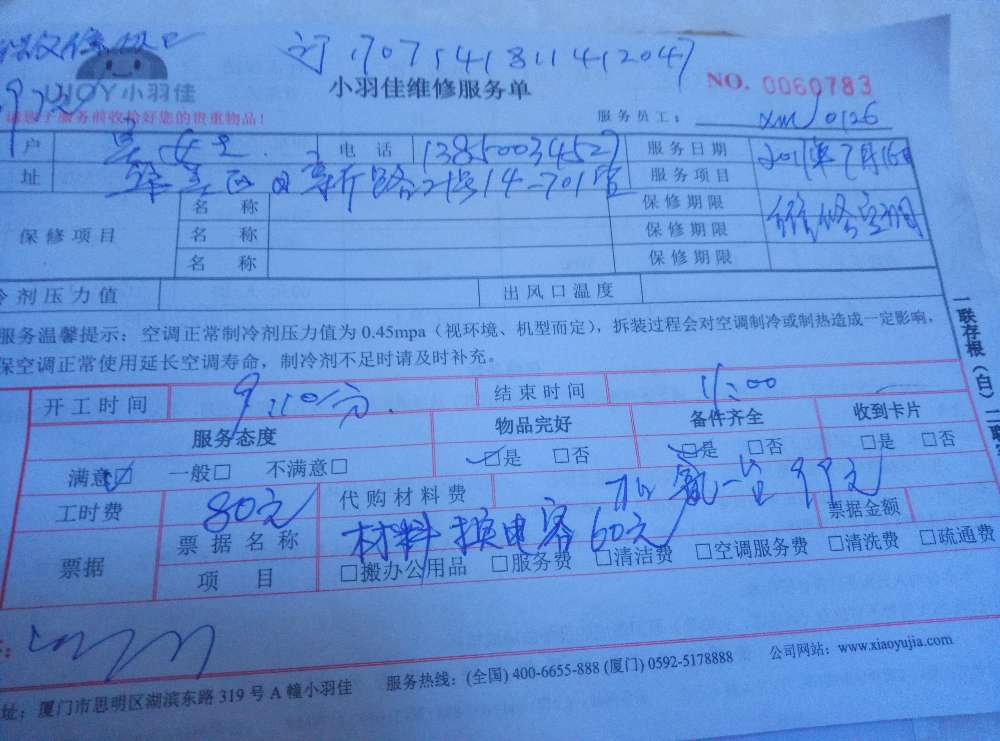 订17071541811412047
UJOY小羽佳
小羽佳维修服务单
NO. 0060783
服务前收拾好您的贵重物品!
服务员工: xmJ0126
户 女士 电话 13850034527 服务日期 2017年7月16日
址 路21号14-701室 服务项目 维修空调
保修项目 名称 保修期限
名称 保修期限
名称 保修期限
冷剂压力值 出风口温度
服务温馨提示: 空调正常制冷剂压力值为 0.45mpa (视环境、机型而定), 拆装过程会对空调制冷或制热造成一定影响,
保空调正常使用延长空调寿命, 制冷剂不足时请及时补充。
一联存根(白)二联
开工时间 结束时间 11:00
服务态度 物品完好 备件齐全 收到卡片
满意☑ 一般□ 不满意□ ☑是 □否 ☑是 □否 □是 □否
工时费 80元 代购材料费 加氟一 99元
票据 票据名称 材料换电容60元 票据金额
项目 □搬办公用品 □服务费 □清洁费 □空调服务费 □清洗费 □疏通费
址: 厦门市思明区湖滨东路 319 号 A 幢小羽佳 服务热线: (全国) 400-6655-888 (厦门) 0592-5178888 公司网站: www.xiaoyujia.com